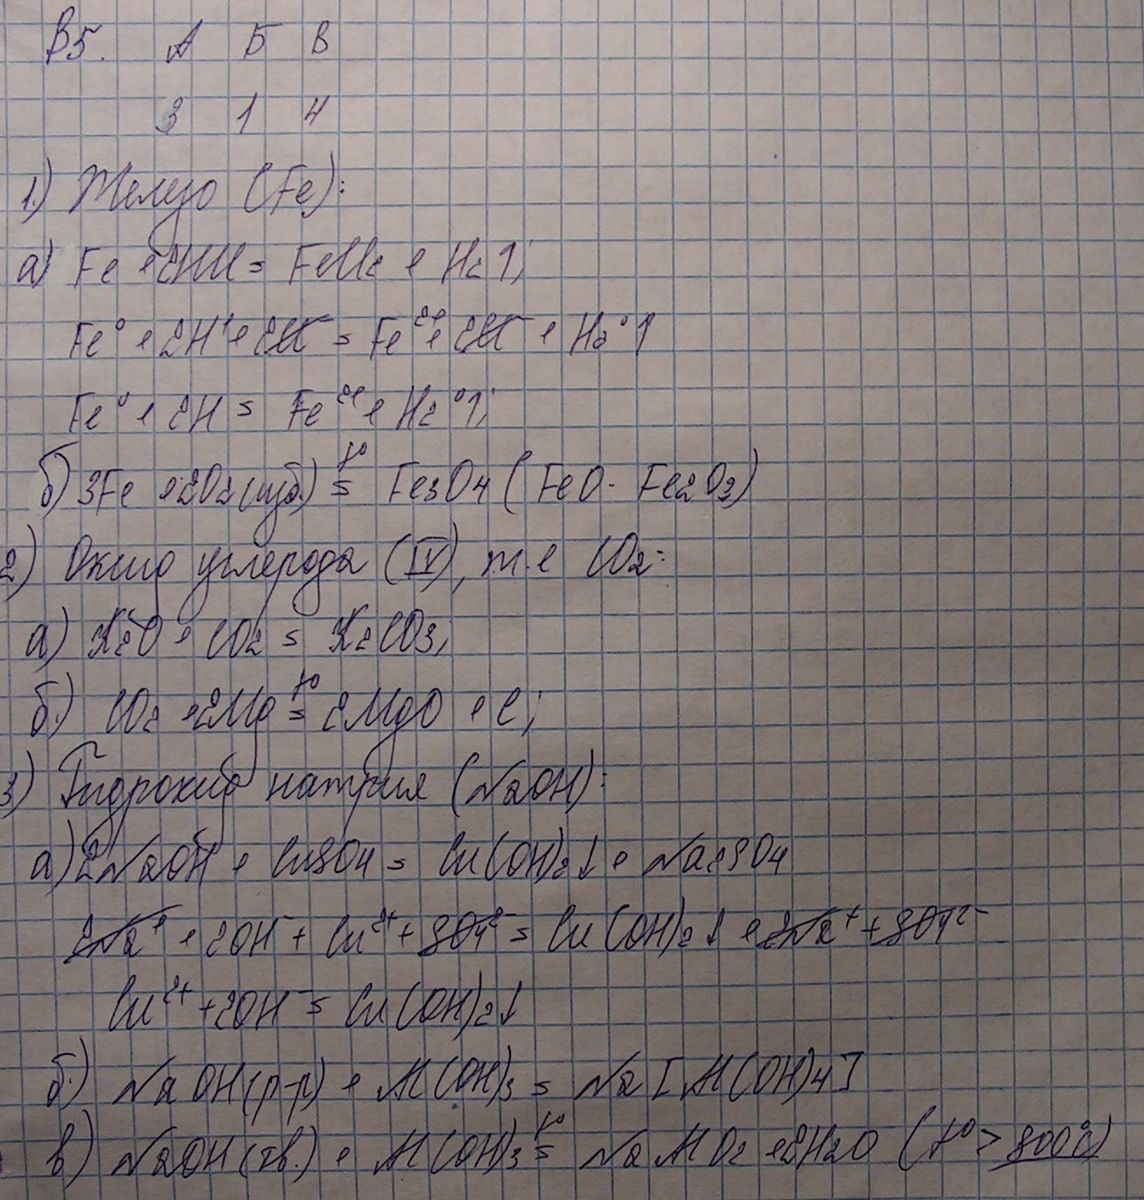 В5. А Б В
3 1 4
1.) Железо (Fe):
а) Fe + 2HCl = FeCl2 + H2↑;
Fe⁰ + 2H⁺ + 2Cl⁻ = Fe²⁺ + 2Cl⁻ + H2⁰↑
Fe⁰ + 2H = Fe²⁺ + H2⁰↑;
б) 3Fe + 2O2 (изб.) =t⁰ Fe3O4 (FeO · Fe2O3)
2) Оксид углерода (IV), т.е CO2:
а) K2O + CO2 = K2CO3;
б.) CO2 + 2Mg =t⁰ 2MgO + C;
3) Гидроксид натрия (NaOH):
а) 2NaOH + CuSO4 = Cu(OH)2↓ + Na2SO4
2Na⁺ + 2OH⁻ + Cu²⁺ + SO4²⁻ = Cu(OH)2↓ + 2Na⁺ + SO4²⁻
Cu²⁺ + 2OH⁻ = Cu(OH)2↓
б.) NaOH (р-р) + Al(OH)3 = Na[Al(OH)4]
в) NaOH (тв.) + Al(OH)3 =t⁰ NaAlO2 + 2H2O (t⁰ > 800°C)